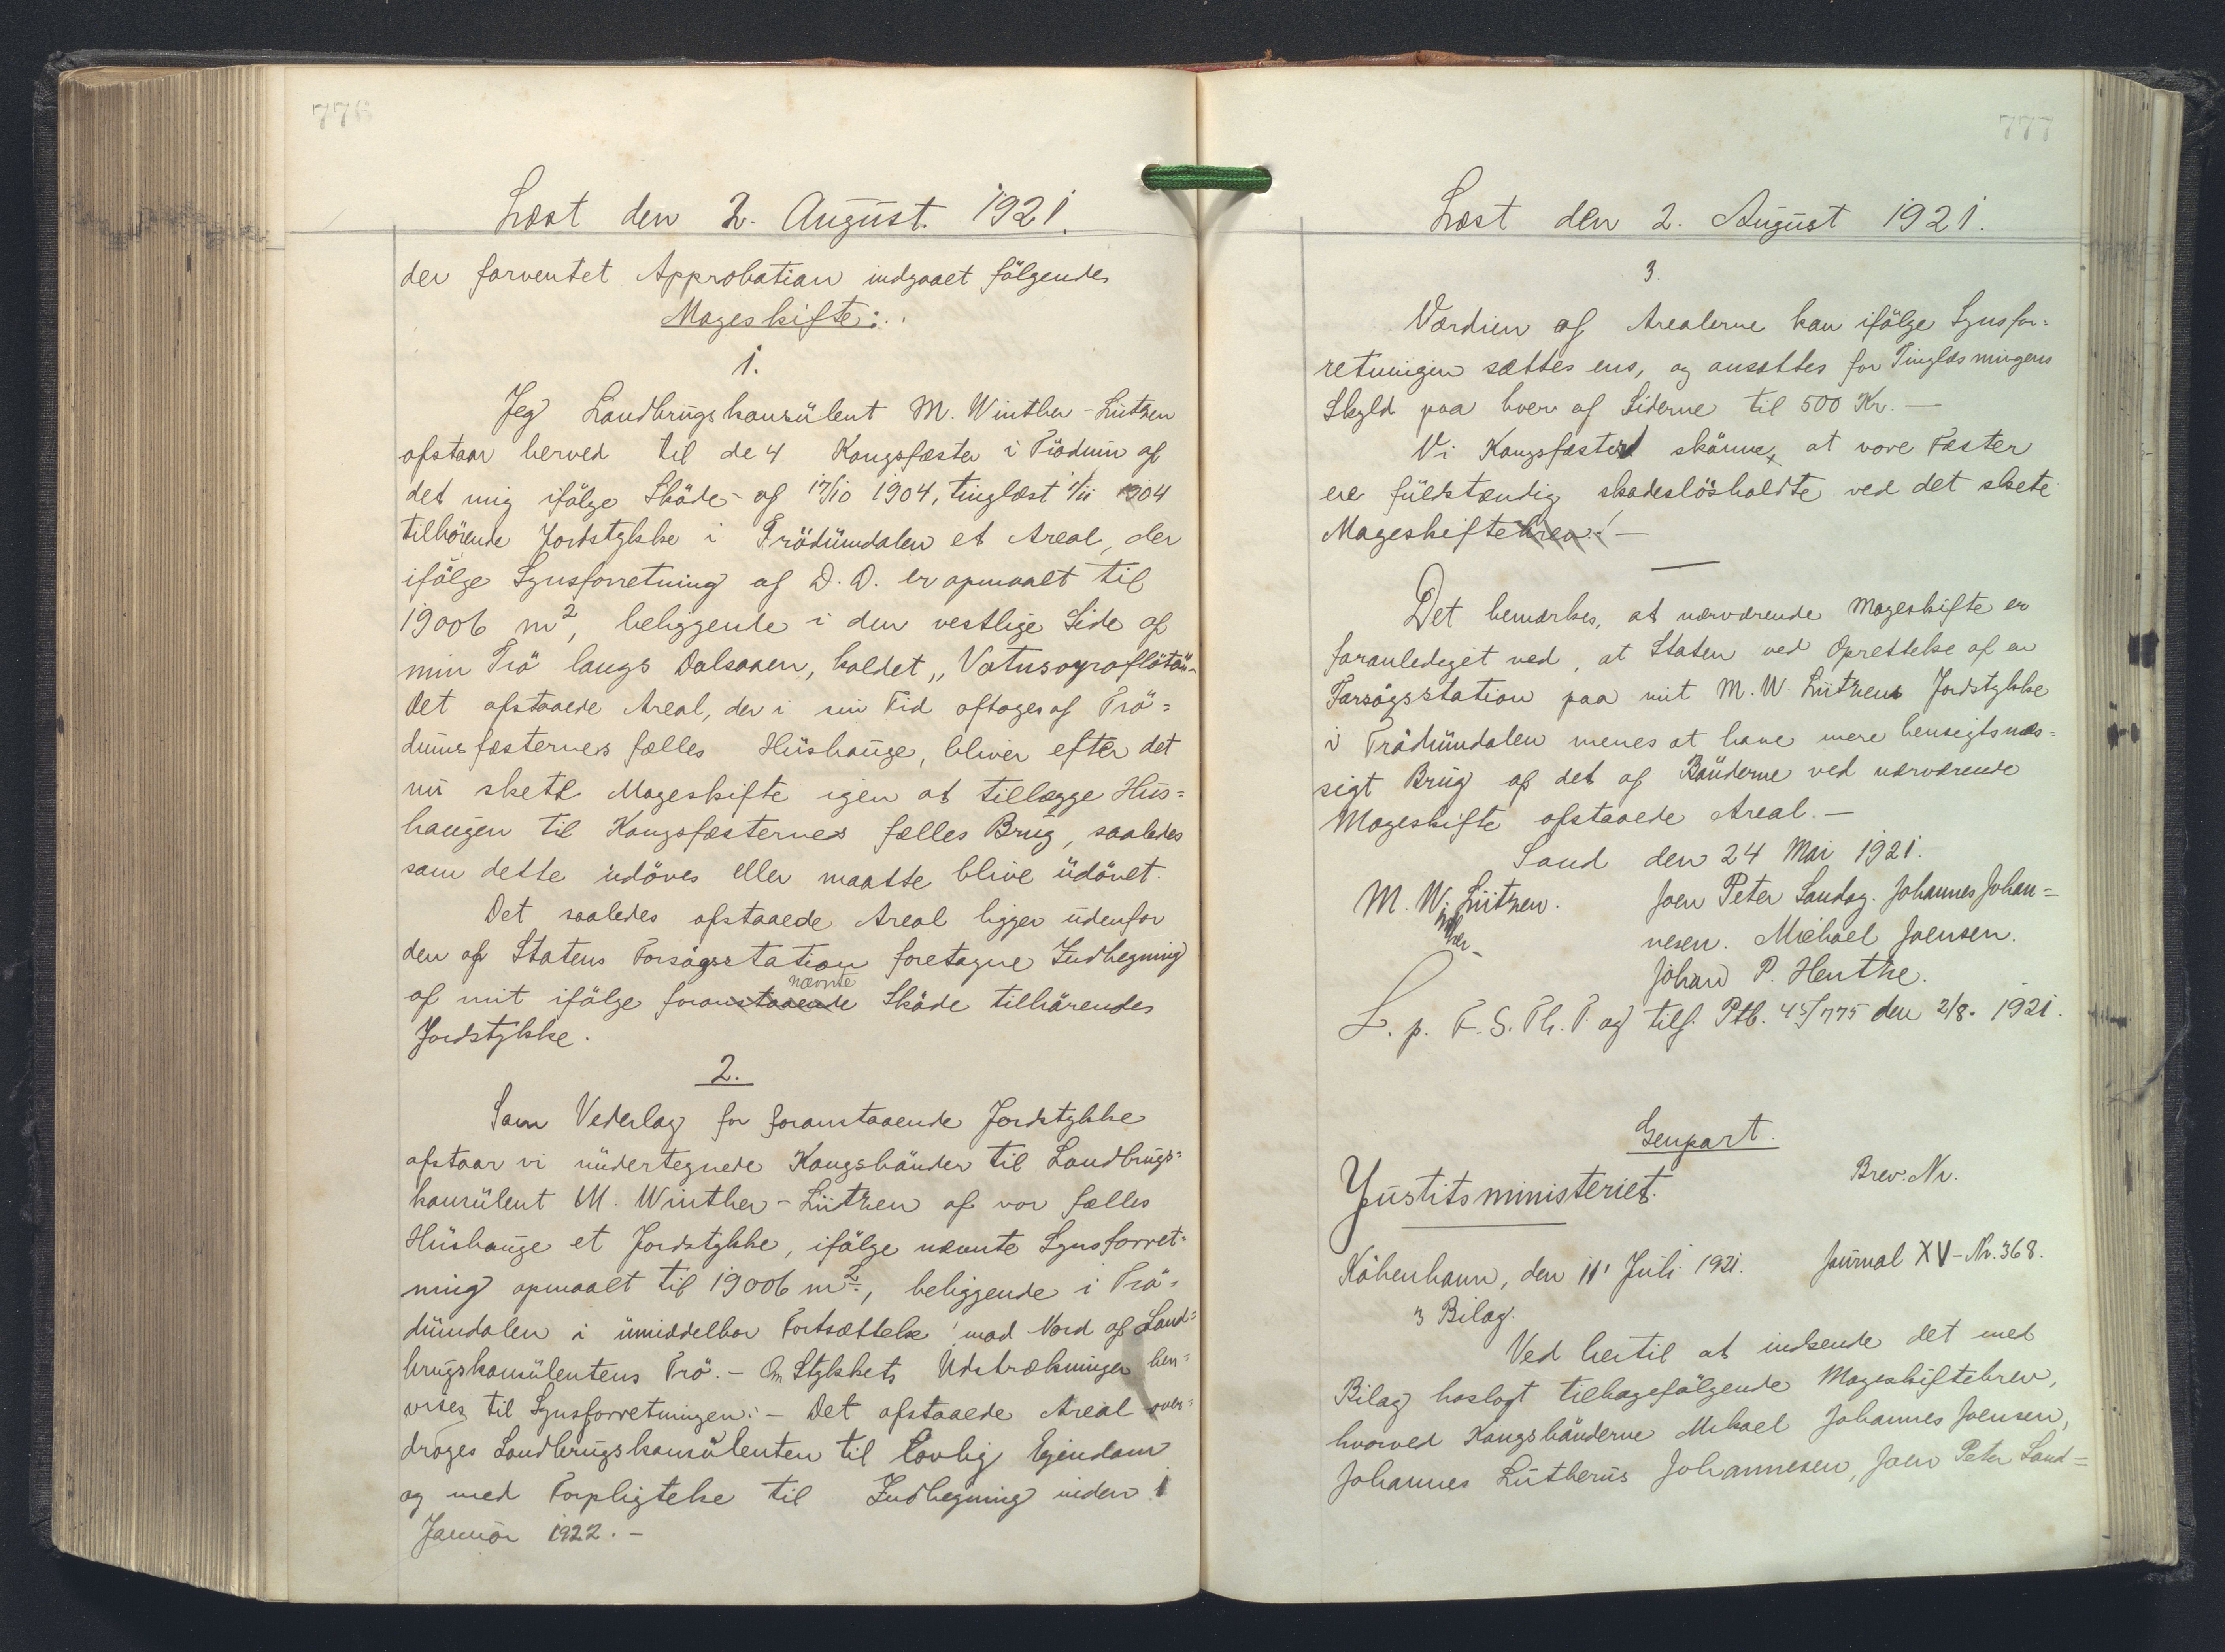 776
Læst den 2. August. 1921.
der forventet Approbation indgaaet følgende
Mageskifte:
1.
Jeg Landbrugskonsulent M. Winther-Lützen
afstaar herved til de 4 Kongsfæster i Trödum af
det mig ifølge Sköde af 17/10 1904, tinglæst 1/11 1904
tilhørende Jordstykke i Trödumdalen et Areal, der
ifølge Synsforretning af D. D. er opmaalt til
19006 m2, beliggende i den vestlige Side af
min Trö langs Dalsaaen, kaldet
Det afstaaede Areal, der i sin Tid aftoges af Trö=
dumsfæsternes fælles Hushauge, bliver efter det
nu skete Mageskifte igen at tillægge Hus=
haugen til Kongsfæsternes fælles Brug, saaledes
som dette udöves eller maatte blive udövet.
Det saaledes afstaaede Areal ligger udenfor
den af Statens Forsøgsstation foretagne Indhegning
nævnte
af mit ifølge foranstaaende Sköde tilhørendes
Jordstykke.
2.
Som Vederlag for foranstaaende Jordstykke
afstaar vi undertegnede Kongsbönder til Landbrugs=
konsulent M. Winther-Lützen af vor fælles
Hushauge et Jordstykke, ifølge nævnte Synsforret=
ning opmaalt til 19006 m2, beliggende i Trö=
dumdalen i umiddelbar Fortsættelse mod Nord af Land=
brugskonsulentens Trö. - Om Stykkets Udstrækninger hen=
vises til Synsforretningen. - Det afstaaede Areal over=
drages Landbrugskonsulenten til lovlig Ejendom
og med Forpligtelse til Indhegning inden 1
Januar 1922. -
777
Læst den 2. August 1921.
3.
Værdien af Arealerne kan ifølge Synsfor=
retningen sættes ens, og ansættes for Tinglæsningens
Skyld paa hver af Siderne til 500 Kr. -
Vi Kongsfæstere skönner, at vore Fæster
ere fuldstændig skadeslösholdte ved det skete
Mageskiftebrev. -
Det bemærkes, at nærværende Mageskifte er
foranlediget ved, at Staten ved Oprettelse af en
Forsøgsstation paa mit M. W. Lützens Jordstykke
i Trödumdalen menes at have mere hensigtsmæs=
sigt Brug af det af Bönderne ved nærværende
Mageskifte afstaaede Areal. -
Sand den 24 Mai 1921.
M. Winther-Lützen. Joen Peter Sandoy. Johannes Johan=
nesen. Michael Joensen.
Johan P. Henthe.
L. p. F. S. Th. P. og tilf. Ptb. 45/775 den 2/8. 1921.
Genpart.
Justitsministeriet. Brev. Nr.
København, den 11' Juli 1921. Journal XV-Nr. 368.
3 Bilag.
Ved hertil at indsende det med
Bilag hoslagt tilbagefølgende Mageskiftebrev,
hvorved Kongsbönderne Mikael Johannes Joensen,
Johannes Lutherus Johannesen, Joen Peter Sand=